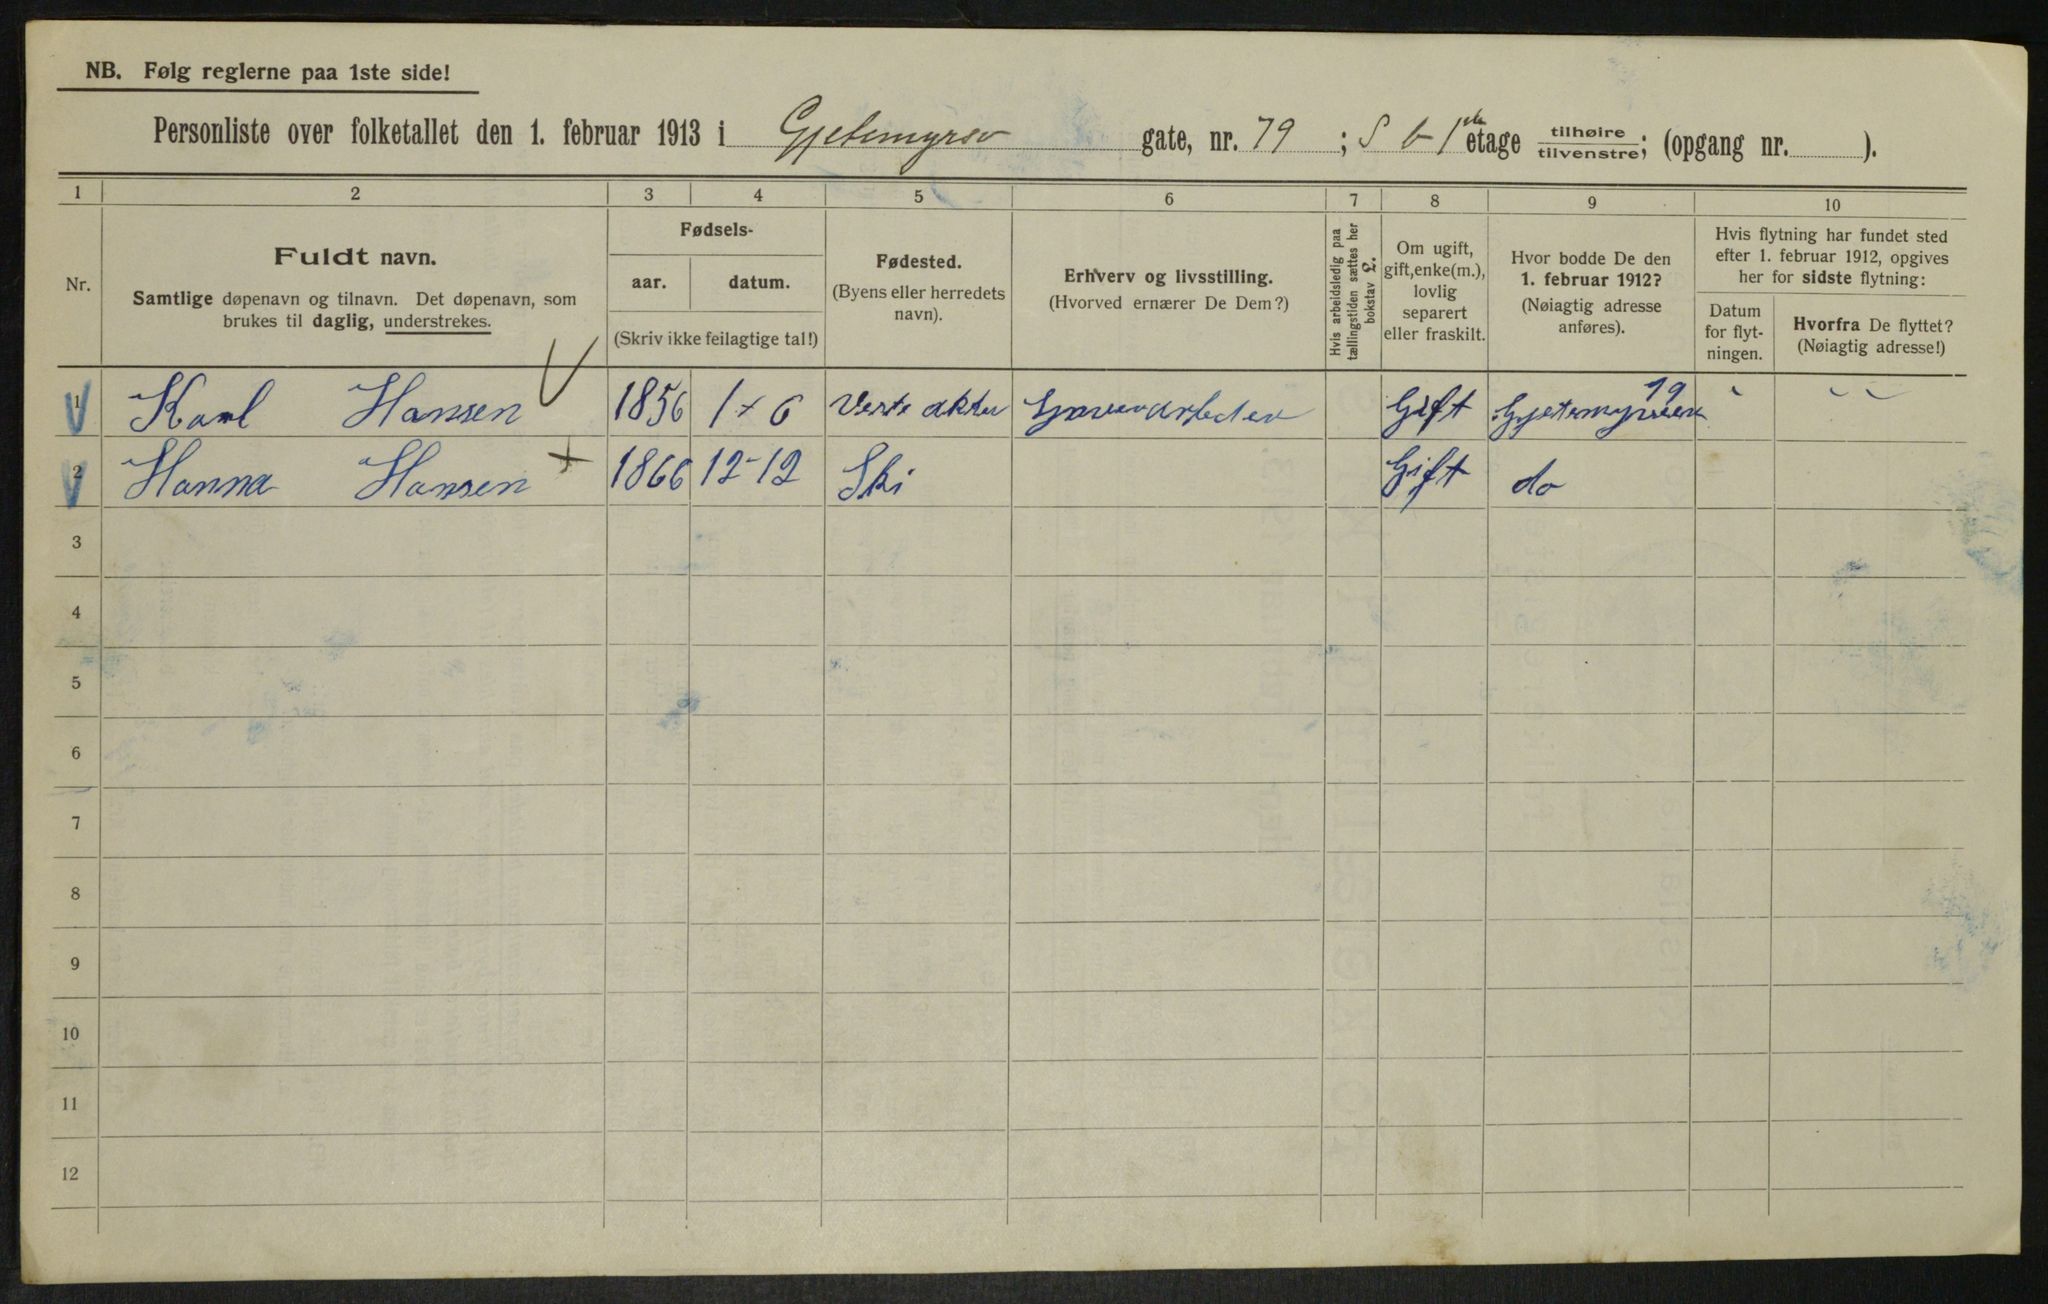 NB. Følg reglerne paa 1ste side!
Personliste over folketallet den 1. februar 1913 i Gjetemyrsv gate, nr. 79 ; S b 1ste etage tilhøire / tilvenstre; (opgang nr. ).
1 2 3 4 5 6 7 8 9 10
Nr.
Fuldt navn.
Samtlige døpenavn og tilnavn. Det døpenavn, som
brukes til daglig, understrekes.
Fødsels-
aar. datum.
(Skriv ikke feilagtige tal!)
Fødested.
(Byens eller herredets
navn).
Erhverv og livsstilling.
(Hvorved ernærer De Dem?)
Hvis arbeidsledig paa
tællingstiden sættes her
bokstav L.
Om ugift,
gift, enke(m.),
lovlig
separert
eller fraskilt.
Hvor bodde De den
1. februar 1912?
(Nøiagtig adresse
anføres).
Hvis flytning har fundet sted
efter 1. februar 1912, opgives
her for sidste flytning:
Datum
for flyt-
ningen.
Hvorfra De flyttet?
(Nøiagtig adresse!)
1 Karl Hansen 1856 1 + 6 Gift 79
2 Hanna Hansen + 1866 12-12 Ski Gift do
3
4
5
6
7
8
9
10
11
12